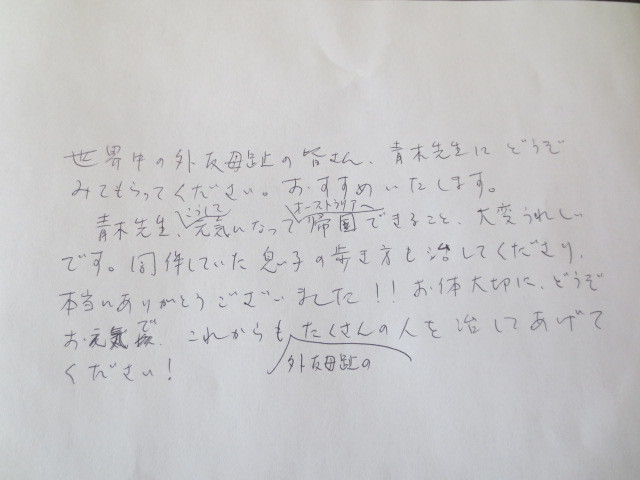 世界中の外反母趾の皆さん、青木先生にどうぞ
みてもらってください。おすすめいたします。
こうして オーストラリアへ
青木先生、元気になって帰国できること、大変うれしい
です。同伴していた息子の歩き方も治してくださり、
本当にありがとうございました!!お体大切に、どうぞ
お元気で、これからもたくさんの人を治してあげて
外反母趾の
ください!